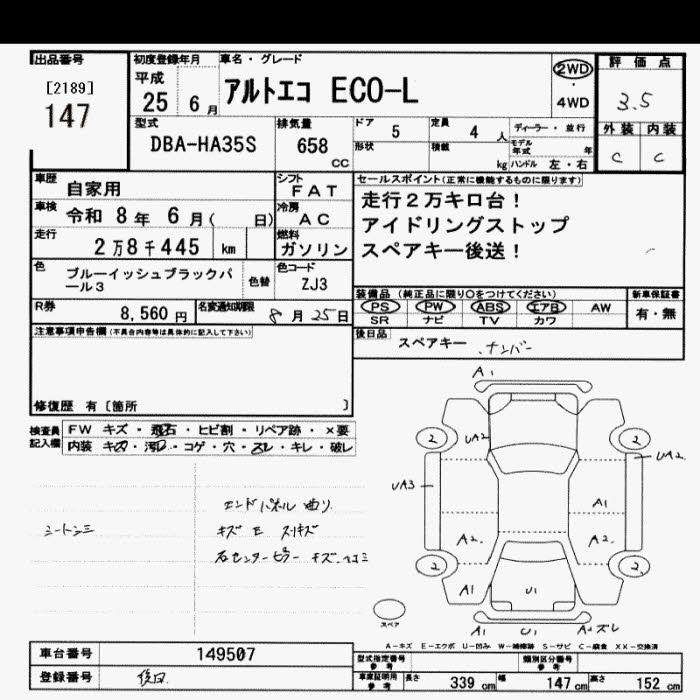 出品番号
[2189]
147
初度登録年月
平成
25 6 月
車名・グレード
アルトエコ ECO-L
2WD
・
4WD
評価点
3.5
外装 内装
C C
型式
DBA-HA35S
排気量
658
CC
ドア 5
定員 4 人
ディーラー・並行
形状
積載 kg
モデル年式 年
ハンドル 左・右
車歴
自家用
シフト
FAT
車検
令和 8年 6月( 日)
冷房
AC
走行
2万8千445 km
燃料
ガソリン
色
ブルーイッシュブラックパール3
色替
色コード
ZJ3
R券
8,560 円
名変通知期限
8月25日
セールスポイント(正常に機能するものに限ります)
走行2万キロ台!
アイドリングストップ
スペアキー後送!
装備品 (純正品に限り○をつけてください)
PS PW ABS エアB AW
SR ナビ TV カワ
新車保証書
有・無
後日品
スペアキー 、ナンバー
注意事項申告欄(不具合内容等は具体的に記入して下さい)
修復歴 有〔箇所 〕
検査員記入欄
FW キズ・飛石・ヒビ割・リペア跡・×要
内装 キズ・汚レ・コゲ・穴・スレ・キレ・破レ
シートシミ
エンドパネル 曲り
キズ
右センターピラー キズ ヘコミ
A1
2 UA2 2 UA2
UA3
A1
A2 A2
2 2
A1 U1
スペア
A1 U1 A2 ズレ
A-キズ E-エクボ U-凹み W-補修跡 S-サビ C-腐食 XX-交換済
車台番号 149507
登録番号 後日
型式指定番号
参考
類別区分番号
参考
車庫証明用
参考
長さ 339 cm 幅 147 cm 高さ 152 cm